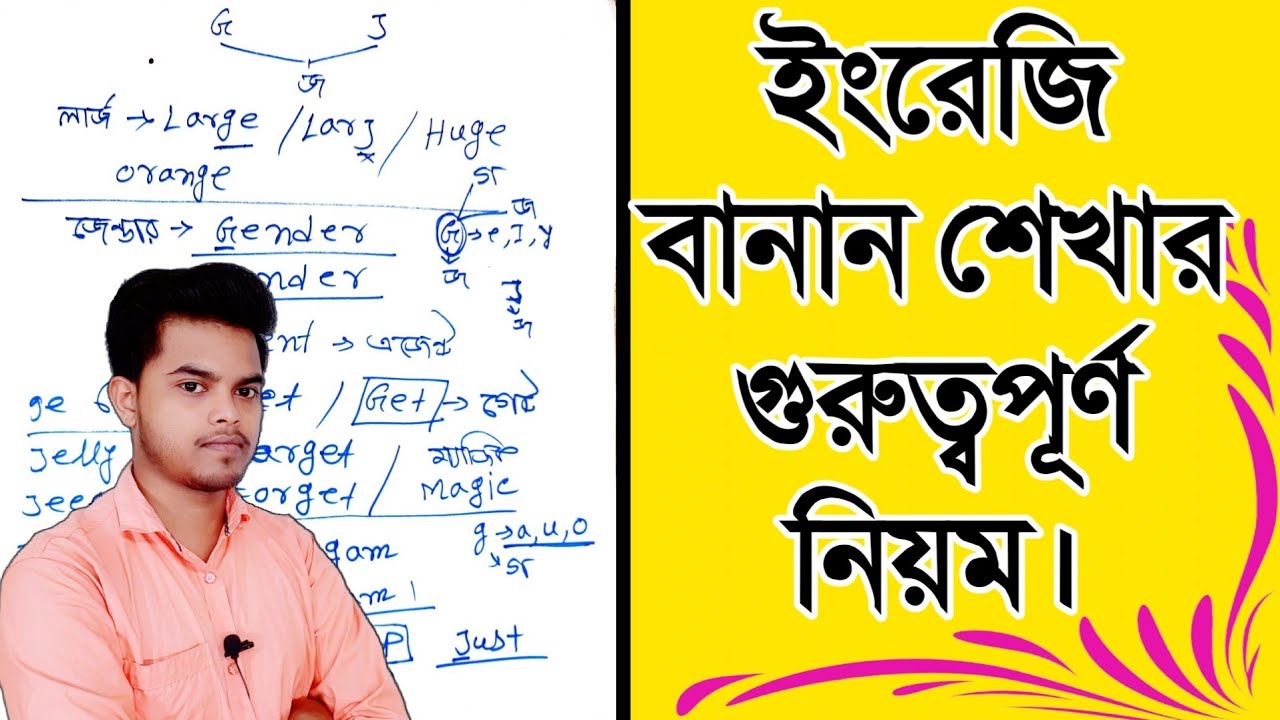 G J
জ
লার্জ → Large / Larj / Huge
orange
গ
জেন্ডার → Gender G → e, I, y জ
nder জ
J
জ
ent → এজেন্ট
ge et / Get → গেট
Jelly arget / ম্যাজিক
Jee orget / Magic
g → a, u, o
গ
gam
m
P Just
ইংরেজি
বানান শেখার
গুরুত্বপূর্ণ
নিয়ম।